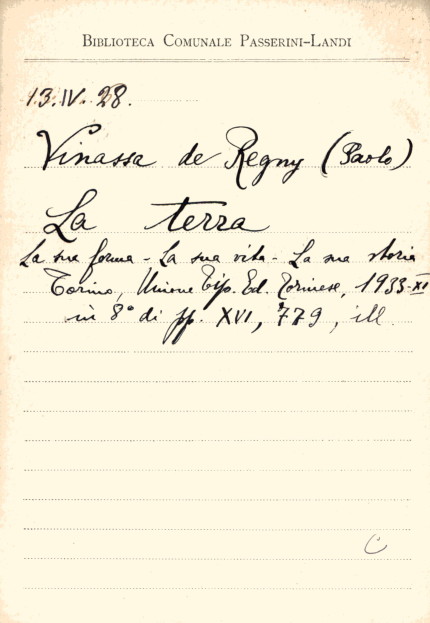 BIBLIOTECA COMUNALE PASSERINI-LANDI
13.IV.28.
Vinassa de Regny (Paolo)
La terra
La sua forma - La sua vita - La sua storia
Torino, Unione Tip. Ed. Torinese, 1933-XI
in 8° di pp. XVI, 779, ill.
C